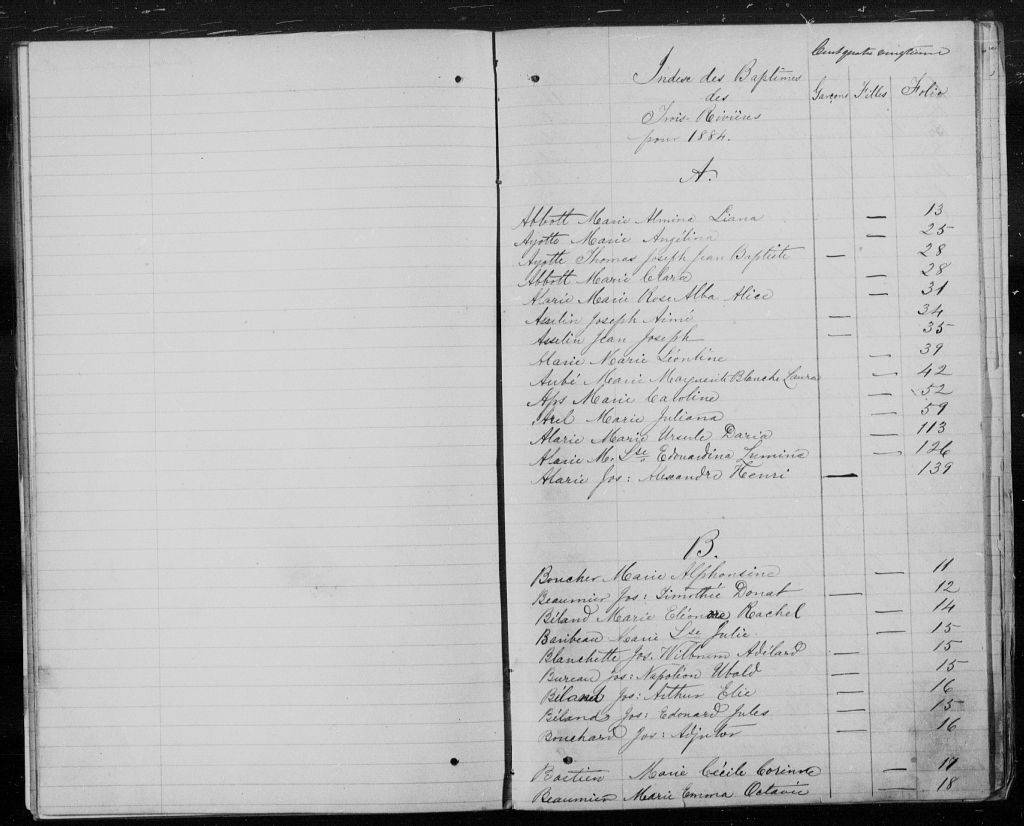 Cent quatre vingtième
Index des Baptêmes
des
Trois-Rivières
pour 1884.
Garçons Filles Folio
A.
Abbott Marie Almina Liana — 13
Ayotte Marie Angélina — 25
Ayotte Thomas Joseph Jean Baptiste — 28
Abbott Marie Clara — 28
Alarie Marie Rose Alba Alice — 31
Asselin Joseph Aimé — 34
Asselin Jean Joseph — 35
Alarie Marie Léontine — 39
Aubé Marie Marguerite Blanche Laura — 42
Aps Marie Caroline — 52
Arel Marie Juliana — 59
Alarie Marie Ursule Daria — 113
Alarie M. Lse Edouardina Lumina — 126
Alarie Jos: Alexandre Henri — 139
B.
Boucher Marie Alphonsine — 11
Beaumier Jos: Timothée Donat — 12
Béland Marie Eléonore Rachel — 14
Baribeau Marie Lse Julie — 15
Blanchette Jos. Wilbrum Adélard — 15
Bureau Jos: Napoléon Ubald — 15
Béland Jos: Arthur Elie — 16
Béland Jos: Edouard Jules — 15
Bouchard Jos: Adjutor — 16
Bastien Marie Cécile Corinne — 17
Beaumier Marie Emma Octavie — 18